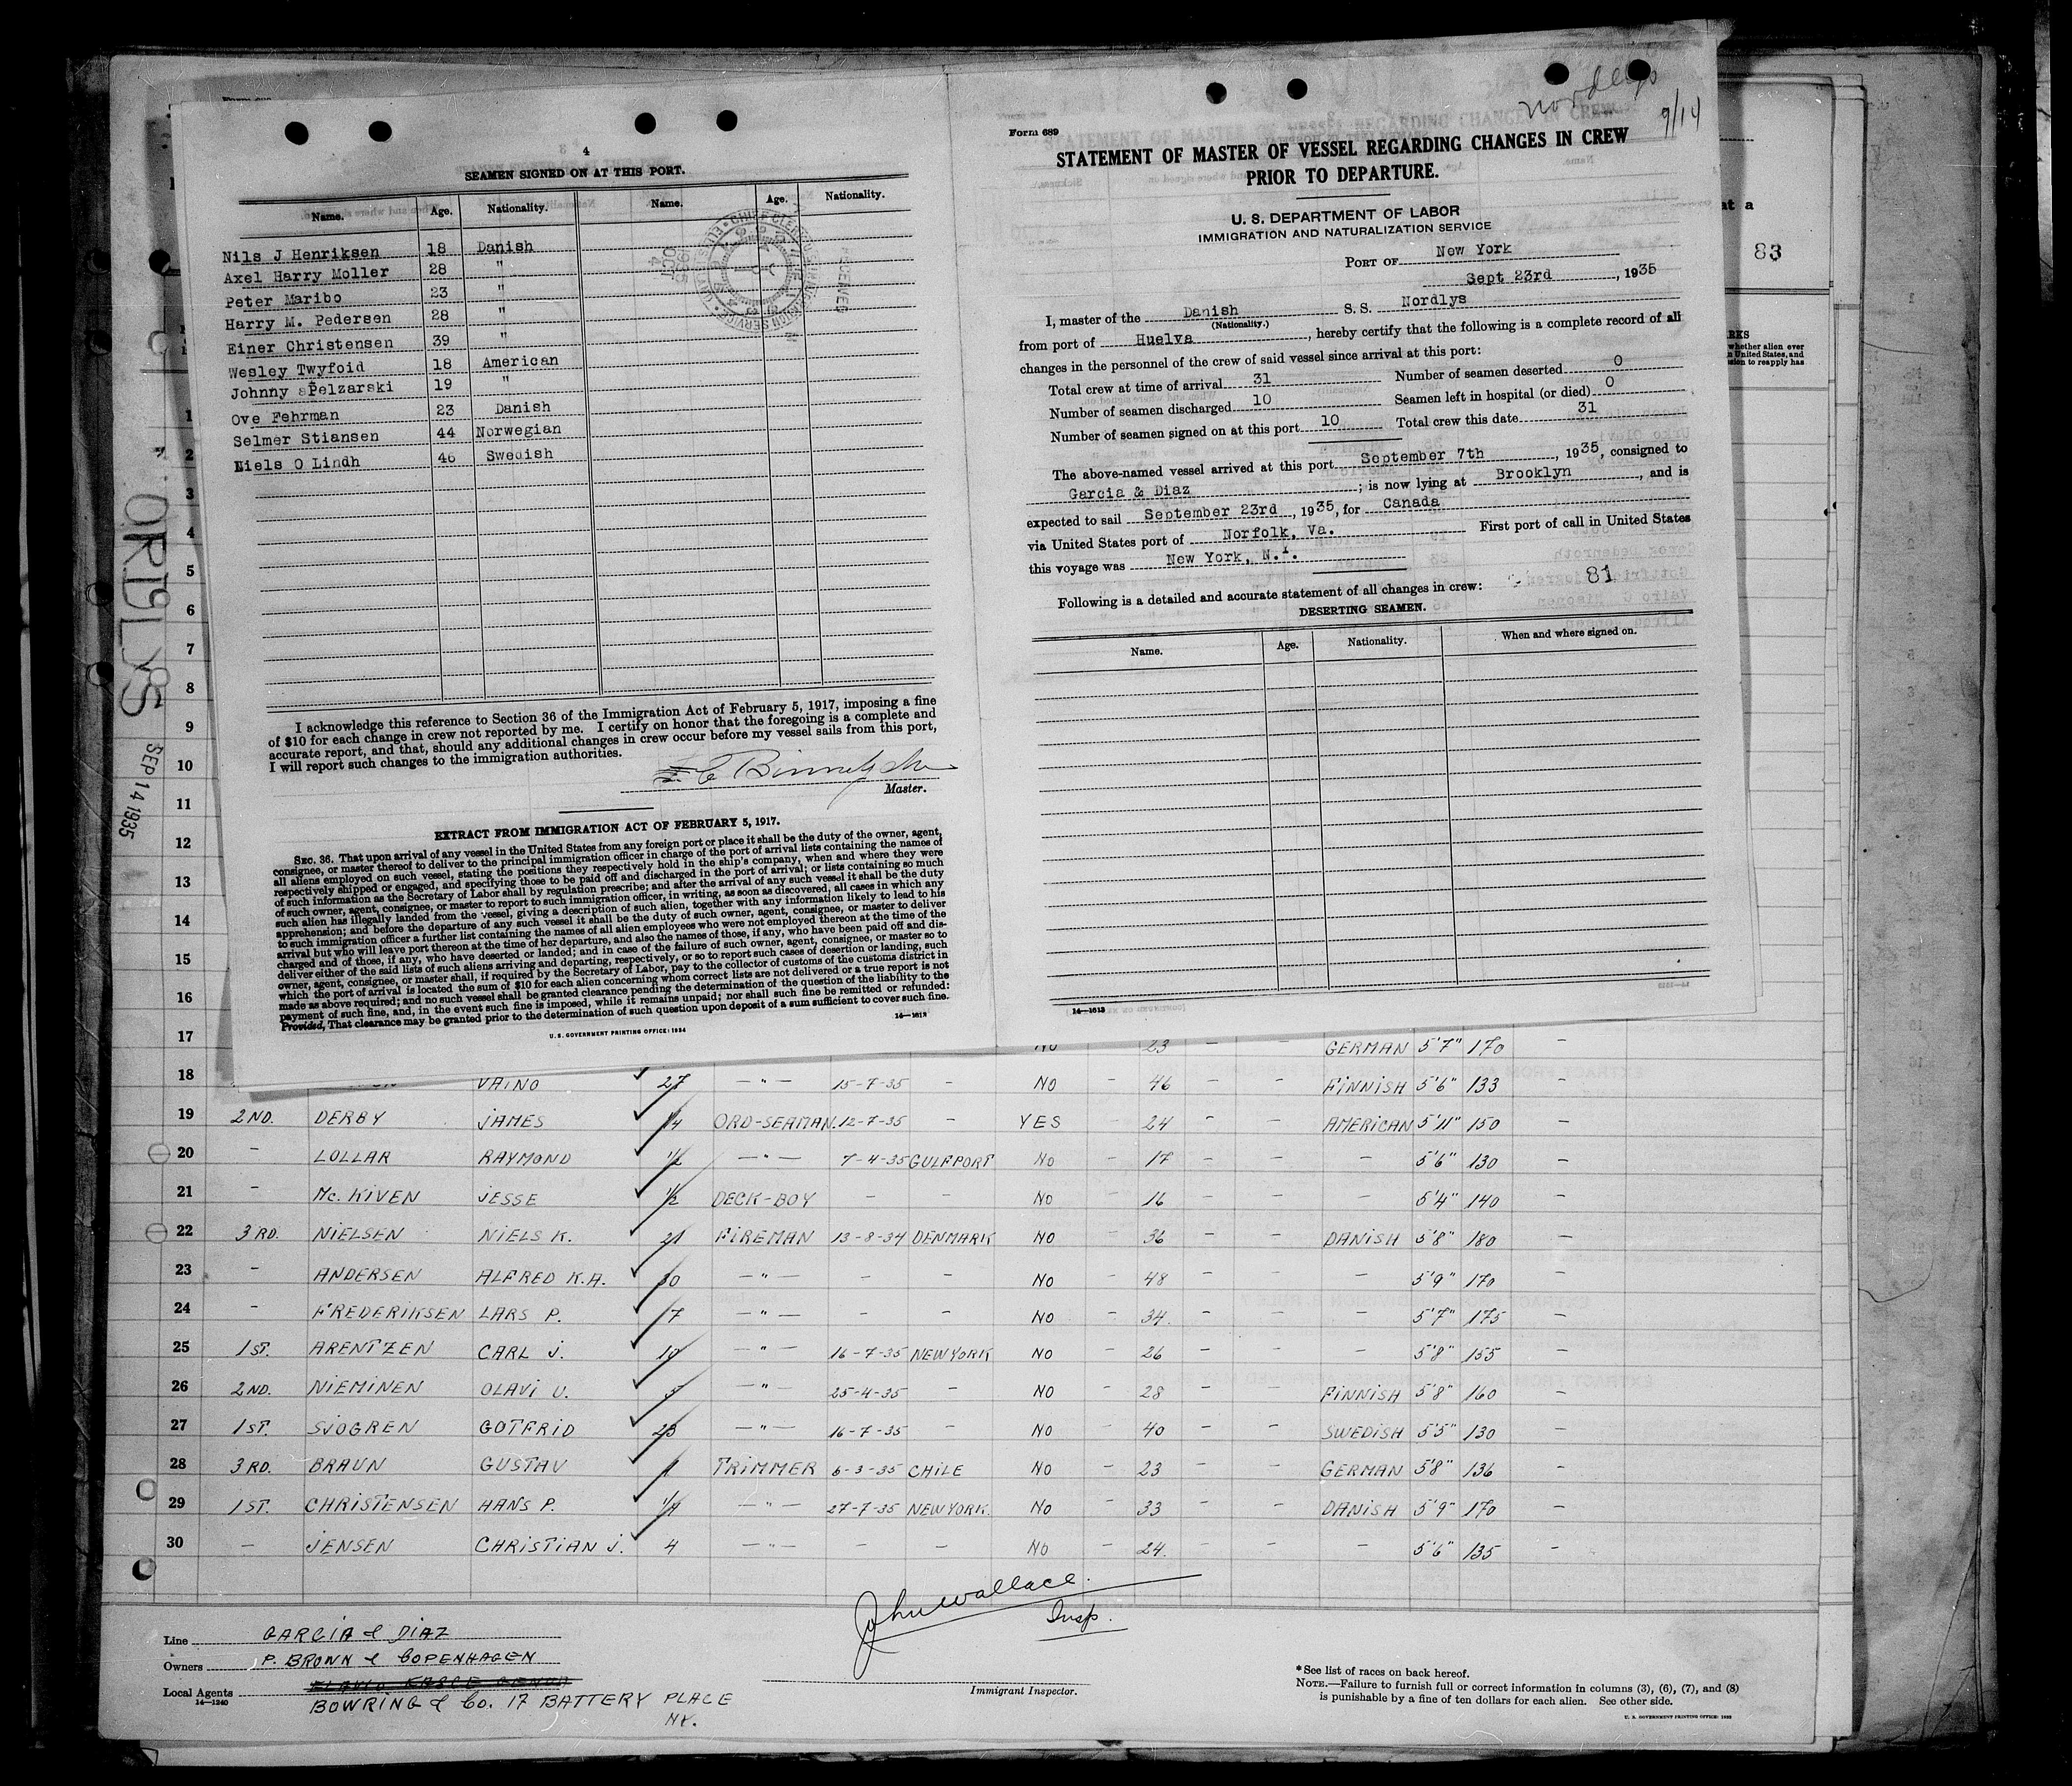 4
SEAMEN SIGNED ON AT THIS PORT.
Name. Age. Nationality. Name. Age. Nationality.
Nils J Henriksen 18 Danish
Axel Harry Moller 28 "
Peter Maribo 23 "
Harry M. Pedersen 28 "
Einer Christensen 39 "
Wesley Twyfoid 18 American
Johnny sPelzarski 19 "
Ove Fehrman 23 Danish
Selmer Stiansen 44 Norwegian
Niels O Lindh 46 Swedish
RECEIVED
OCT 4 1935
I acknowledge this reference to Section 36 of the Immigration Act of February 5, 1917, imposing a fine
of $10 for each change in crew not reported by me. I certify on honor that the foregoing is a complete and
accurate report, and that, should any additional changes in crew occur before my vessel sails from this port,
I will report such changes to the immigration authorities.
Master.
EXTRACT FROM IMMIGRATION ACT OF FEBRUARY 5, 1917.
SEC. 36. That upon arrival of any vessel in the United States from any foreign port or place it shall be the duty of the owner, agent,
consignee, or master thereof to deliver to the principal immigration officer in charge of the port of arrival lists containing the names of
all aliens employed on such vessel, stating the positions they respectively hold in the ship's company, when and where they were
respectively shipped or engaged, and specifying those to be paid off and discharged in the port of arrival; or lists containing so much
of such information as the Secretary of Labor shall by regulation prescribe; and after the arrival of any such vessel it shall be the duty
of such owner, agent, consignee, or master to report to such immigration officer, in writing, as soon as discovered, all cases in which any
such alien has illegally landed from the vessel, giving a description of such alien, together with any information likely to lead to his
apprehension; and before the departure of any such vessel it shall be the duty of such owner, agent, consignee, or master to deliver
to such immigration officer a further list containing the names of all alien employees who were not employed thereon at the time of the
arrival but who will leave port thereon at the time of her departure, and also the names of those, if any, who have been paid off and dis-
charged and of those, if any, who have deserted or landed; and in case of the failure of such owner, agent, consignee, or master so to
deliver either of the said lists of such aliens arriving and departing, respectively, or so to report such cases of desertion or landing, such
owner, agent, consignee, or master shall, if required by the Secretary of Labor, pay to the collector of customs of the customs district in
which the port of arrival is located the sum of $10 for each alien concerning whom correct lists are not delivered or a true report is not
made as above required; and no such vessel shall be granted clearance pending the determination of the question of the liability to the
payment of such fine, and, in the event such fine is imposed, while it remains unpaid; nor shall such fine be remitted or refunded:
Provided, That clearance may be granted prior to the determination of such question upon deposit of a sum sufficient to cover such fine.
U. S. GOVERNMENT PRINTING OFFICE: 1934 14—1613
Nordlys
9/14
Form 689
STATEMENT OF MASTER OF VESSEL REGARDING CHANGES IN CREW
PRIOR TO DEPARTURE.
U. S. DEPARTMENT OF LABOR
IMMIGRATION AND NATURALIZATION SERVICE
PORT OF New York
Sept 23rd, 1935
I, master of the Danish S. S. Nordlys
(Nationality.)
from port of Huelva, hereby certify that the following is a complete record of all
changes in the personnel of the crew of said vessel since arrival at this port:
Total crew at time of arrival 31 Number of seamen deserted 0
Number of seamen discharged 10 Seamen left in hospital (or died) 0
Number of seamen signed on at this port 10 Total crew this date 31
The above-named vessel arrived at this port September 7th, 1935, consigned to
Garcia & Diaz; is now lying at Brooklyn, and is
expected to sail September 23rd, 1935, for Canada
via United States port of Norfolk, Va. First port of call in United States
this voyage was New York, N.Y.
Following is a detailed and accurate statement of all changes in crew: 81
DESERTING SEAMEN.
Name. Age. Nationality. When and where signed on.
14—1613
at a
83
RKS
whether alien ever
n United States, and
sion to reapply has
NORDLYS
SEP 14 1935
1
2
3
4
5
6
7
8
9
10
11
12
13
14
15
16
17 NO - 23 - - GERMAN 5'7" 170 -
18 VAINO 27 -"- 15-7-35 - NO - 46 - - FINNISH 5'6" 133
19 2ND. DERBY JAMES 1/4 ORD-SEAMAN. 12-7-35 - YES - 24 - - AMERICAN 5'11" 150 -
20 - LOLLAR RAYMOND 1/2 -"- 7-4-35 GULFPORT NO - 17 - - - 5'6" 130 -
21 - Mc. KIVEN JESSE 1/2 DECK-BOY - - NO - 16 - - - 5'4" 140 -
22 3RD. NIELSEN NIELS K. 21 FIREMAN 13-8-34 DENMARK NO - 36 - - DANISH 5'8" 180 -
23 - ANDERSEN ALFRED K.A. 30 -"- - - NO - 48 - - - 5'9" 170 -
24 - FREDERIKSEN LARS P. 17 -"- - - NO - 34. - - - 5'7" 175 -
25 1ST. ARENTZEN CARL J. 10 -"- 16-7-35 NEW YORK NO - 26 - - - 5'8" 155 -
26 2ND. NIEMINEN OLAVI U. 5 -"- 25-4-35 - NO - 28 - - FINNISH 5'8" 160 -
27 1ST. SJOGREN GOTFRID 23 -"- 16-7-35 - NO - 40 - - SWEDISH 5'5" 130 -
28 3RD. BRAUN GUSTAV 1 TRIMMER 6-3-35 CHILE NO - 23 - - GERMAN 5'8" 136 -
29 1ST. CHRISTENSEN HANS P. 1/4 -"- 27-7-35 NEW YORK. NO - 33 - - DANISH 5'9" 170 -
30 - JENSEN CHRISTIAN J. 4 -"- - - NO - 24. - - - 5'6" 135 -
John Wallace.
Insp.
Line GARCIA & DIAZ
Owners P. BROWN & COPENHAGEN
Local Agents
14—1240
BOWRING & Co. 17 BATTERY PLACE
NY.
Immigrant Inspector.
*See list of races on back hereof.
NOTE.—Failure to furnish full or correct information in columns (3), (6), (7), and (8)
is punishable by a fine of ten dollars for each alien. See other side.
U. S. GOVERNMENT PRINTING OFFICE: 1932